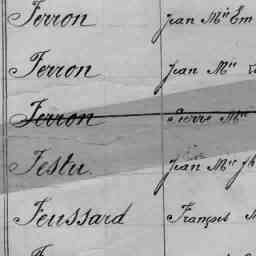 Ferron Jean Mie Em
Ferron Jean Mie
Ferron Pierre Mie
Festu Jean Mie
Feussard François M